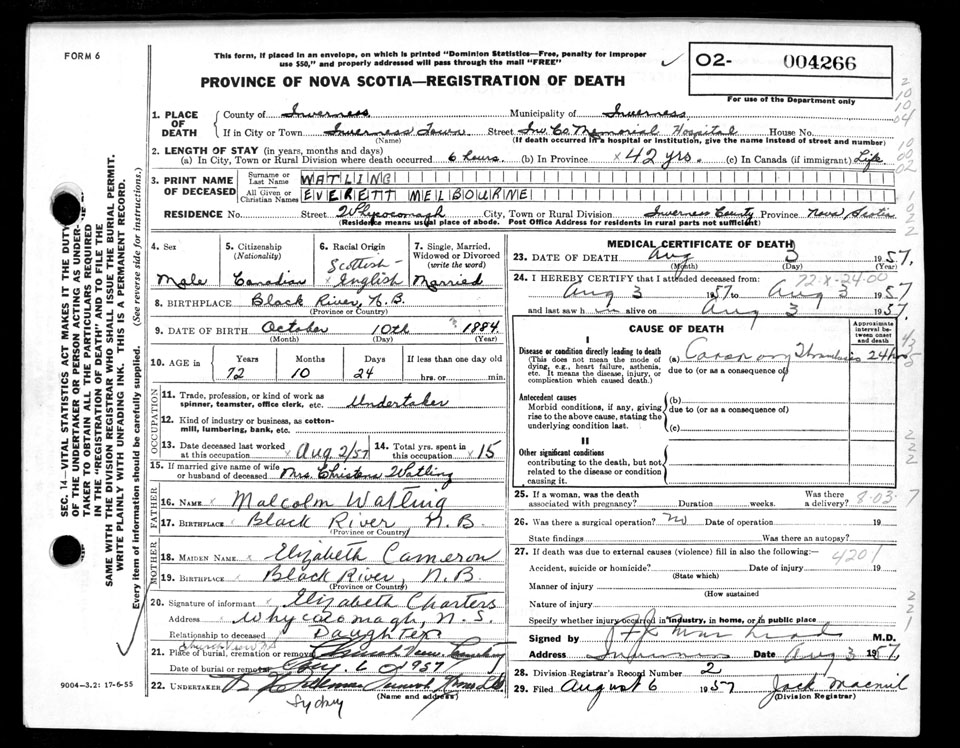 FORM 6
This form, if placed in an envelope, on which is printed "Dominion Statistics—Free, penalty for improper
use $50," and properly addressed will pass through the mail "FREE"
O2- 004266
For use of the Department only
PROVINCE OF NOVA SCOTIA—REGISTRATION OF DEATH
1. PLACE OF DEATH County of Inverness Municipality of Inverness
If in City or Town Inverness Town Street Inv. Co. Memorial Hospital House No.
(Name) (If death occurred in a hospital or institution, give the name instead of street and number)
2. LENGTH OF STAY (in years, months and days)
(a) In City, Town or Rural Division where death occurred 6 hours. (b) In Province x 42 yrs. (c) In Canada (if immigrant) Life
3. PRINT NAME OF DECEASED Surname or Last Name WATLING
All Given or Christian Names EVERETT MELBOURNE
RESIDENCE No. Street Whycocomagh City, Town or Rural Division Inverness County Province Nova Scotia
(Residence means usual place of abode. Post Office Address for residents in rural parts not sufficient)
4. Sex 5. Citizenship (Nationality) 6. Racial Origin 7. Single, Married, Widowed or Divorced (write the word)
Male Canadian Scottish-English Married
8. BIRTHPLACE Black River, N.B.
(Province or Country)
9. DATE OF BIRTH October 10th 1884
(Month) (Day) (Year)
10. AGE in Years Months Days If less than one day old
72 10 24 hrs. or min.
OCCUPATION
11. Trade, profession, or kind of work as spinner, teamster, office clerk, etc. Undertaker
12. Kind of industry or business, as cotton-mill, lumbering, bank, etc.
13. Date deceased last worked at this occupation x Aug 2/57 14. Total yrs. spent in this occupation x 15
15. If married give name of wife or husband of deceased Mrs. Christena Watling
FATHER
16. NAME Malcolm Watling
17. BIRTHPLACE Black River, N.B.
(Province or Country)
MOTHER
18. MAIDEN NAME Elizabeth Cameron
19. BIRTHPLACE Black River, N.B.
(Province or Country)
20. Signature of informant Elizabeth Charters
Address Whycocomagh, N.S.
Relationship to deceased Daughter
21. Place of burial, cremation or removal
Date of burial or removal Aug. 6 1957
22. UNDERTAKER
(Name and address)
Sydney
MEDICAL CERTIFICATE OF DEATH
23. DATE OF DEATH Aug 3 1957.
(Month) (Day) (Year)
24. I HEREBY CERTIFY that I attended deceased from:
72-X-24-00
Aug 3 1957 to Aug 3 1957
and last saw h im alive on Aug 3 1957
CAUSE OF DEATH Approximate interval between onset and death
I
Disease or condition directly leading to death (a) Coronary Thrombosis 24 hrs
(This does not mean the mode of dying, e.g., heart failure, asthenia, etc. It means the disease, injury, or complication which caused death.)
due to (or as a consequence of)
Antecedent causes (b)
Morbid conditions, if any, giving rise to the above cause, stating the underlying condition last.
due to (or as a consequence of)
(c)
II
Other significant conditions
contributing to the death, but not related to the disease or condition causing it.
25. If a woman, was the death associated with pregnancy? Duration weeks. Was there a delivery?
8-03-7
26. Was there a surgical operation? no Date of operation 19
State findings Was there an autopsy?
27. If death was due to external causes (violence) fill in also the following:—
4201
Accident, suicide or homicide? Date of injury 19
(State which)
Manner of injury
(How sustained
Nature of injury
Specify whether injury occurred in industry, in home, or in public place
Signed by M.D.
Address Inverness Date Aug 3 1957.
28. Division Registrar's Record No. 2
29. Filed August 6 1957 Jack Macneil
(Division Registrar)
SEC. 14—VITAL STATISTICS ACT MAKES IT THE DUTY
OF THE UNDERTAKER OR PERSON ACTING AS UNDER-
TAKER TO OBTAIN ALL THE PARTICULARS REQUIRED
IN THE "REGISTRATION OF DEATH" AND TO FILE THE
SAME WITH THE DIVISION REGISTRAR WHO SHALL ISSUE THE BURIAL PERMIT.
WRITE PLAINLY WITH UNFADING INK. THIS IS A PERMANENT RECORD.
Every item of information should be carefully supplied. (See reverse side for instructions.)
9004-3.2: 17-6-55